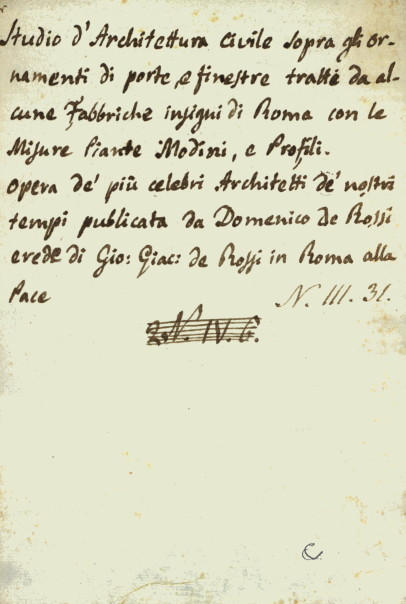 Studio d'Architettura civile sopra gli or-
namenti di porte, e finestre tratti da al-
cune Fabbriche insigni di Roma con le
Misure Piante Modini, e Profili.
opera de' più celebri Architetti de' nostri
tempi publicata da Domenico De Rossi
erede di Gio: Giac: de Rossi in Roma alla
Pace
N. III. 31.
N. IV. 6.